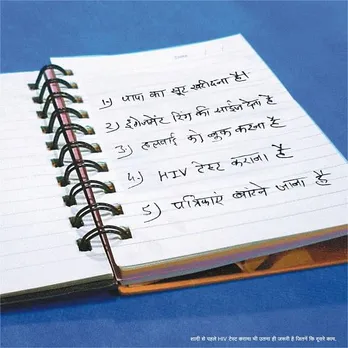 1) पापा का सूट खरीदना है।
2) इंगेजमेंट रिंग की साईज देना है
3) हलवाई को बुक करना है
4) HIV टेस्ट कराना है
5) पत्रिकाएं बांटने जाना है
शादी से पहले HIV टेस्ट कराना भी उतना ही जरूरी है जितने कि दूसरे काम.